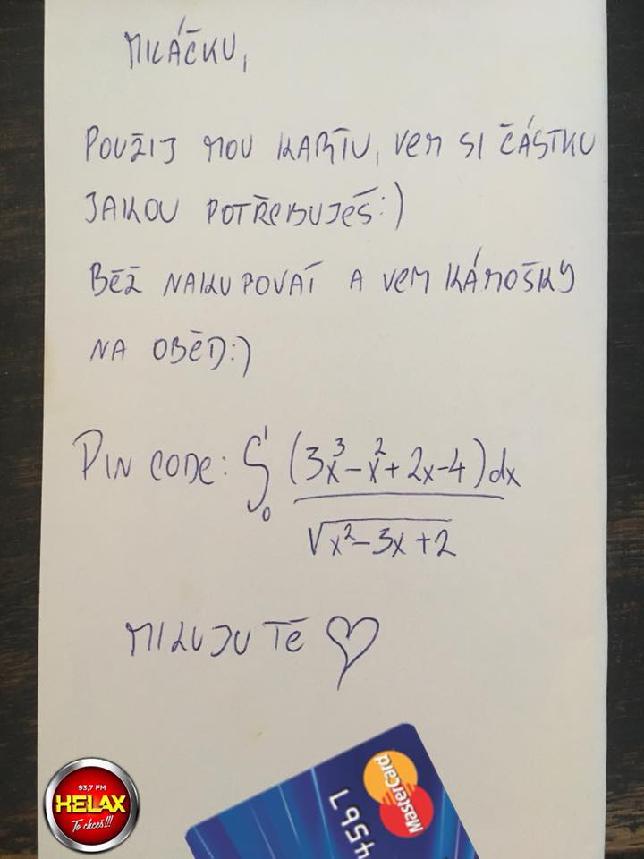 MILÁČKU,
POUŽIJ MOU KARTU, VEM SI ČÁSTKU
JAKOU POTŘEBUJEŠ:)
BĚŽ NAKUPOVAT A VEM KÁMOŠKY
NA OBĚD:)
PIN CODE: ∫₀¹ (3x³-x²+2x-4)dx
√x²-3x+2
MILUJU TĚ ♡
MasterCard
4567
93,7 FM
HELAX
To chceš!!!